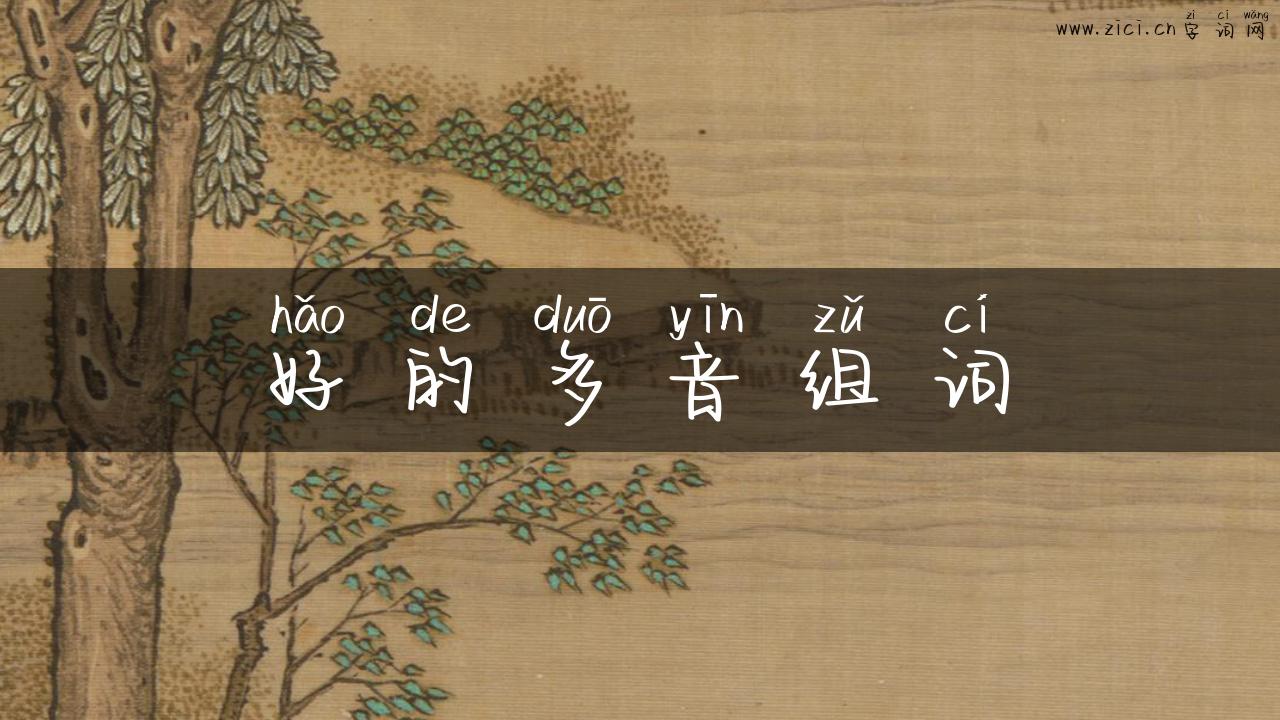 zì cí wǎng
www.zici.cn 字词网
hǎo de duō yīn zǔ cí
好的多音组词